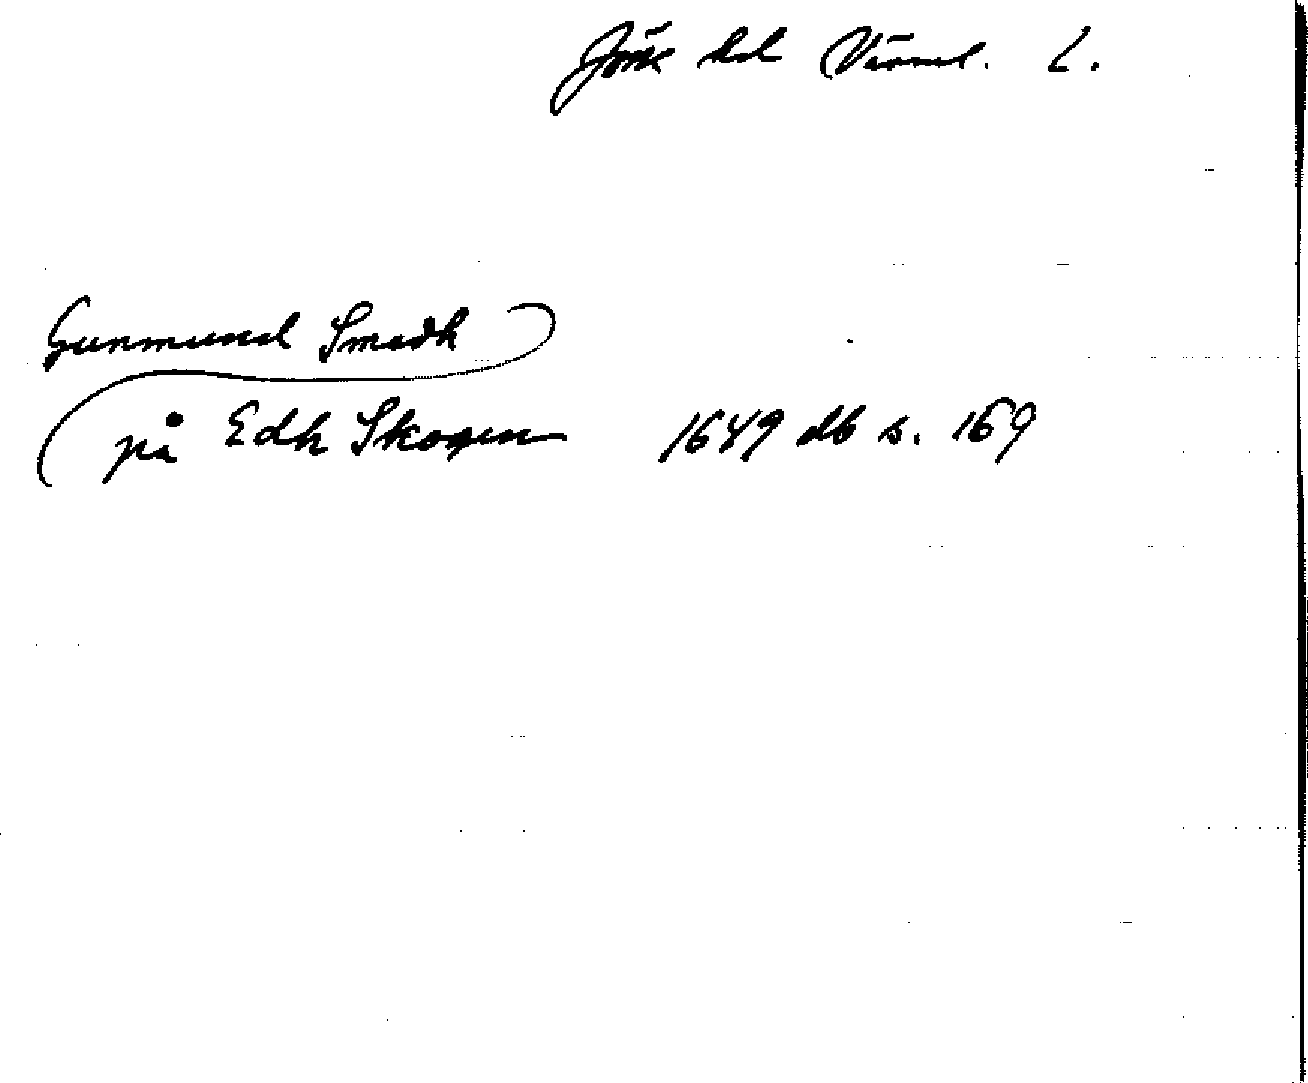 Jöss hd Värml. L.
Gunmund Smedh
på Edh Skogen 1649 db s. 169